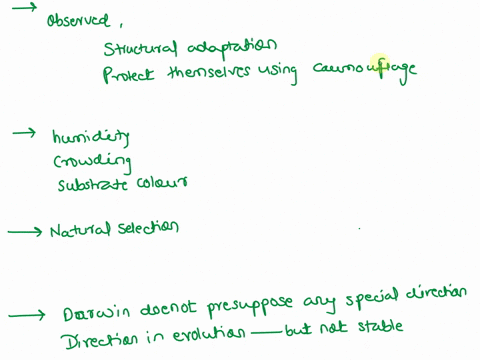 → Observed,
Structural adaptation
Protect themselves using camouflage
→ humidity
Crowding
Substrate colour
→ Natural selection
→ Darwin doenot presuppose any special direction
Direction in evolution — but not stable